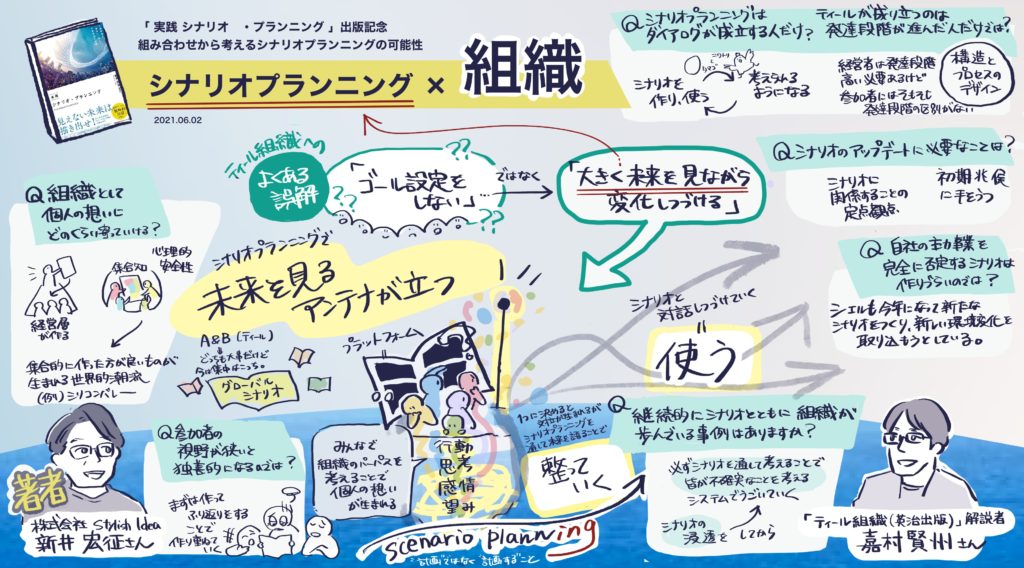 「 実践 シナリオ ・プランニング 」 出版記念
組み合わせから考えるシナリオプランニングの可能性
シナリオプランニング × 組織
2021.06.02
シナリオ・プランニング
見えない未来は、
描き出せ!
Q シナリオプランニングは
ダイアログが成立する人だけ?
シナリオを
作り、使う
考えられる
ようになる
ティールが成り立つのは
発達段階が進んだ人だけでは?
経営者は発達段階
高い必要あるけど
参加者にはそもそも
発達段階の区別がない
構造と
プロセスの
デザイン
ティール組織への
よくある
誤解
「ゴール設定を
しない」
??
??
??
ではなく
「大きく未来を見ながら
変化しつづける」
Qシナリオのアップデートに必要なことは?
シナリオに
関係することの
定点観点
初期兆候
に手をうつ
Q 組織として
個人の想いに
どのくらい寄っていける?
経営層
が作る
集合知
心理的
安全性
集合的に作った方が良いものが
生まれる世界的潮流
(例)シリコンバレー
シナリオプランニングで
未来を見る
アンテナが立つ
A&B (ティール)
どっちも大事だけど
今は集中はこっち。
グローバル
シナリオ
プラットフォーム
シナリオと
対話しつづけていく
使う
Q 自社の主力事業を
完全に否定するシナリオは
作りづらいのでは?
シェルも今年になって新たな
シナリオをつくり、新しい環境変化を
取り込もうとしている。
著者
株式会社 Stylish Idea
新井 宏征さん
Q参加者の
視野が狭いと
独善的になるのでは?
まずは作って
ふり返りをする
ことで
作り重ねていく
みんなで
組織のパーパスを
考えることで
個人の想い
が生まれる
行動
思考
感情
望み
1つに決めると
対立が生まれるが
シナリオプランニングを
通して未来を語ることで
整って
いく
scenario planning
"計画"ではなく"計画する"こと
Q 継続的にシナリオとともに 組織が
歩んでいる事例はありますか?
必ずシナリオを通して考えることで
皆が不確実なことを考える
システムでうごいていく
シナリオの
浸透を してから
「ティール組織(英治出版)」解説者
嘉村賢州さん